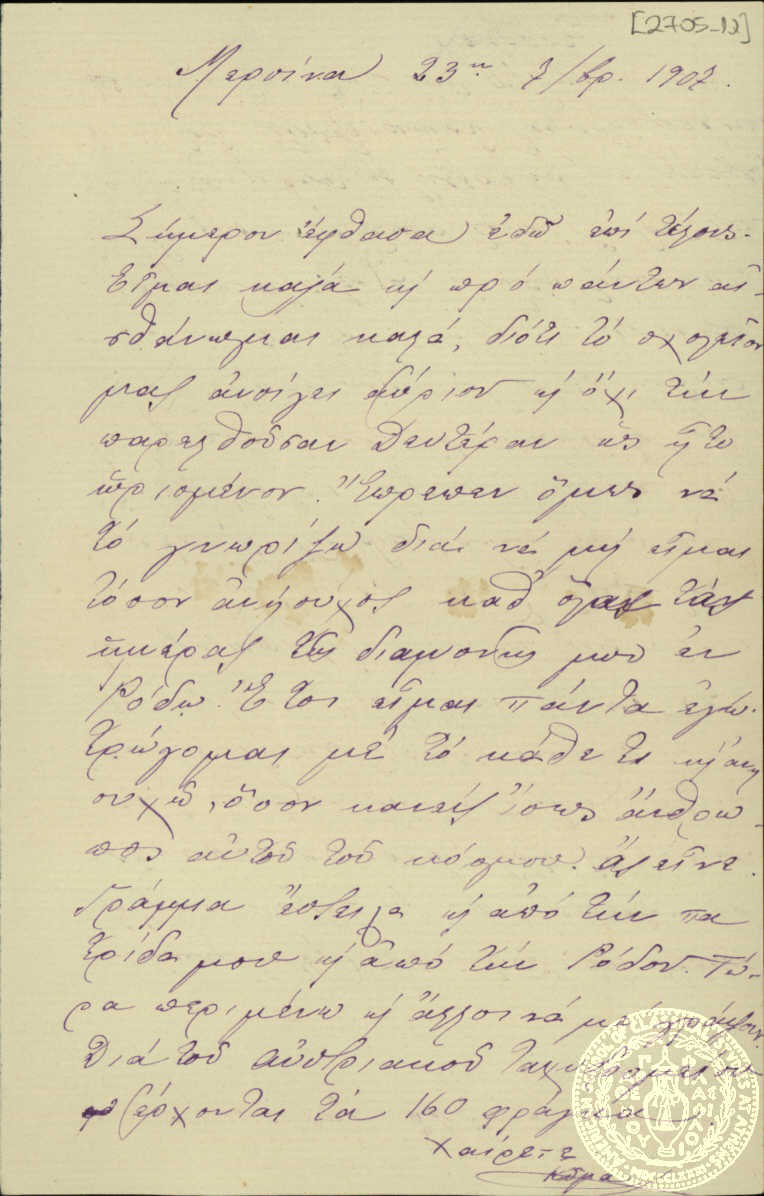 [2705-12]
Μερσίνα 23η 7/βρ. 1907.
Σήμερον ἔφθασα ἐδῶ ἐπί τέλους.
Εἶμαι καλά κ πρό πάντων αἰ-
σθάνομαι καλά, διότι τό σχολεῖον
μας ἀνοίγει αὔριον κ ὄχι τήν
παρελθοῦσαν Δευτέραν ὡς ἦτο
ὡρισμένον. Ἔπρεπεν ὅμως νά
τό γνωρίζω διά νά μή εἶμαι
τόσον ἀνήσυχος καθ' ὅλας τάς
ἡμέρας τῆς διαμονῆς μου ἐν
Ρόδῳ. Ἔτσι εἶμαι πάντα ἐγώ.
Τρώγομαι μέ τό κάθε τι κ ἀνη
συχῶ, ὅσον κανείς ἴσως ἄνθρω-
πος αὐτοῦ τοῦ κόσμου. Ἄς εἶνε.
Γράμμα ἔστειλα κ ἀπό τήν πα
τρίδα μου κ ἀπό τήν Ρόδον. Τώ-
ρα περιμένω κ ἄλλοι νά μοί γράψουν.
Διά τοῦ αὐστριακοῦ ταχυδρομείου
ἔρχονται τά 160 φράγκα.
Χαίρετε